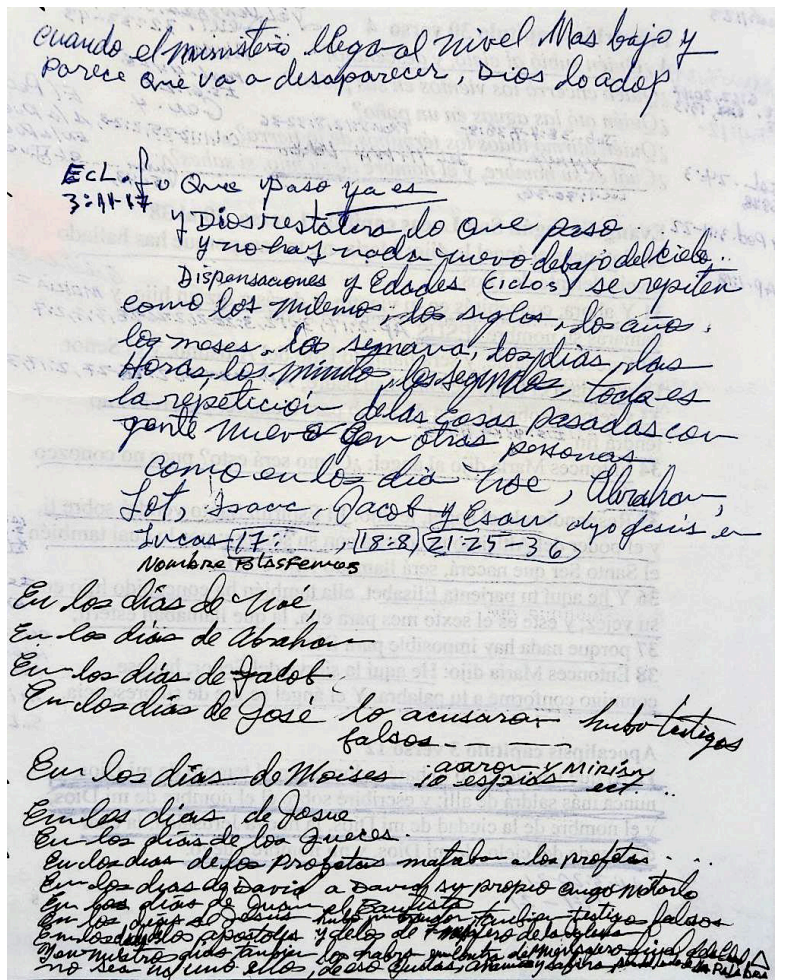 cuando el ministerio llega al nivel Mas bajo y
parece que va a desaparecer, Dios lo adop
EcL.
3:
lo Que paso ya es
y Dios restaura lo que paso
y no hay nada nuevo debajo del cielo..
Dispensaciones y Edades (ciclos) se repiten
como los milenios, los siglos, los años.
los meses, las semana, los días, las
Horas, los minutos, los segundos, todo es
la repetición de las cosas pasadas con
gente nuevo con otras personas
como en los dia Noe, Abraham,
Lot, Isaac, Jacob y Esau dijo Jesus en
Lucas 17:?, (18:8) 21:25-36
Nombre Blasfemos
En los días de Noé,
En los días de Abraham
En los días de Jacob.
En los días de José lo acusaron hubo testigos
falsos
En los días de Moises aaron y Mirian
espias ect..
En los días de Josue
En los dias de los Jueces
En los dias de los Profetas mataban a los profetas...
En los dyas de David a David su propio
En los días de Juan el Bautista
En los días de Jesús hubo un traidor tambien testigos falsos
En los apostoles y de los de
no sea us uno ellos,
Palabra